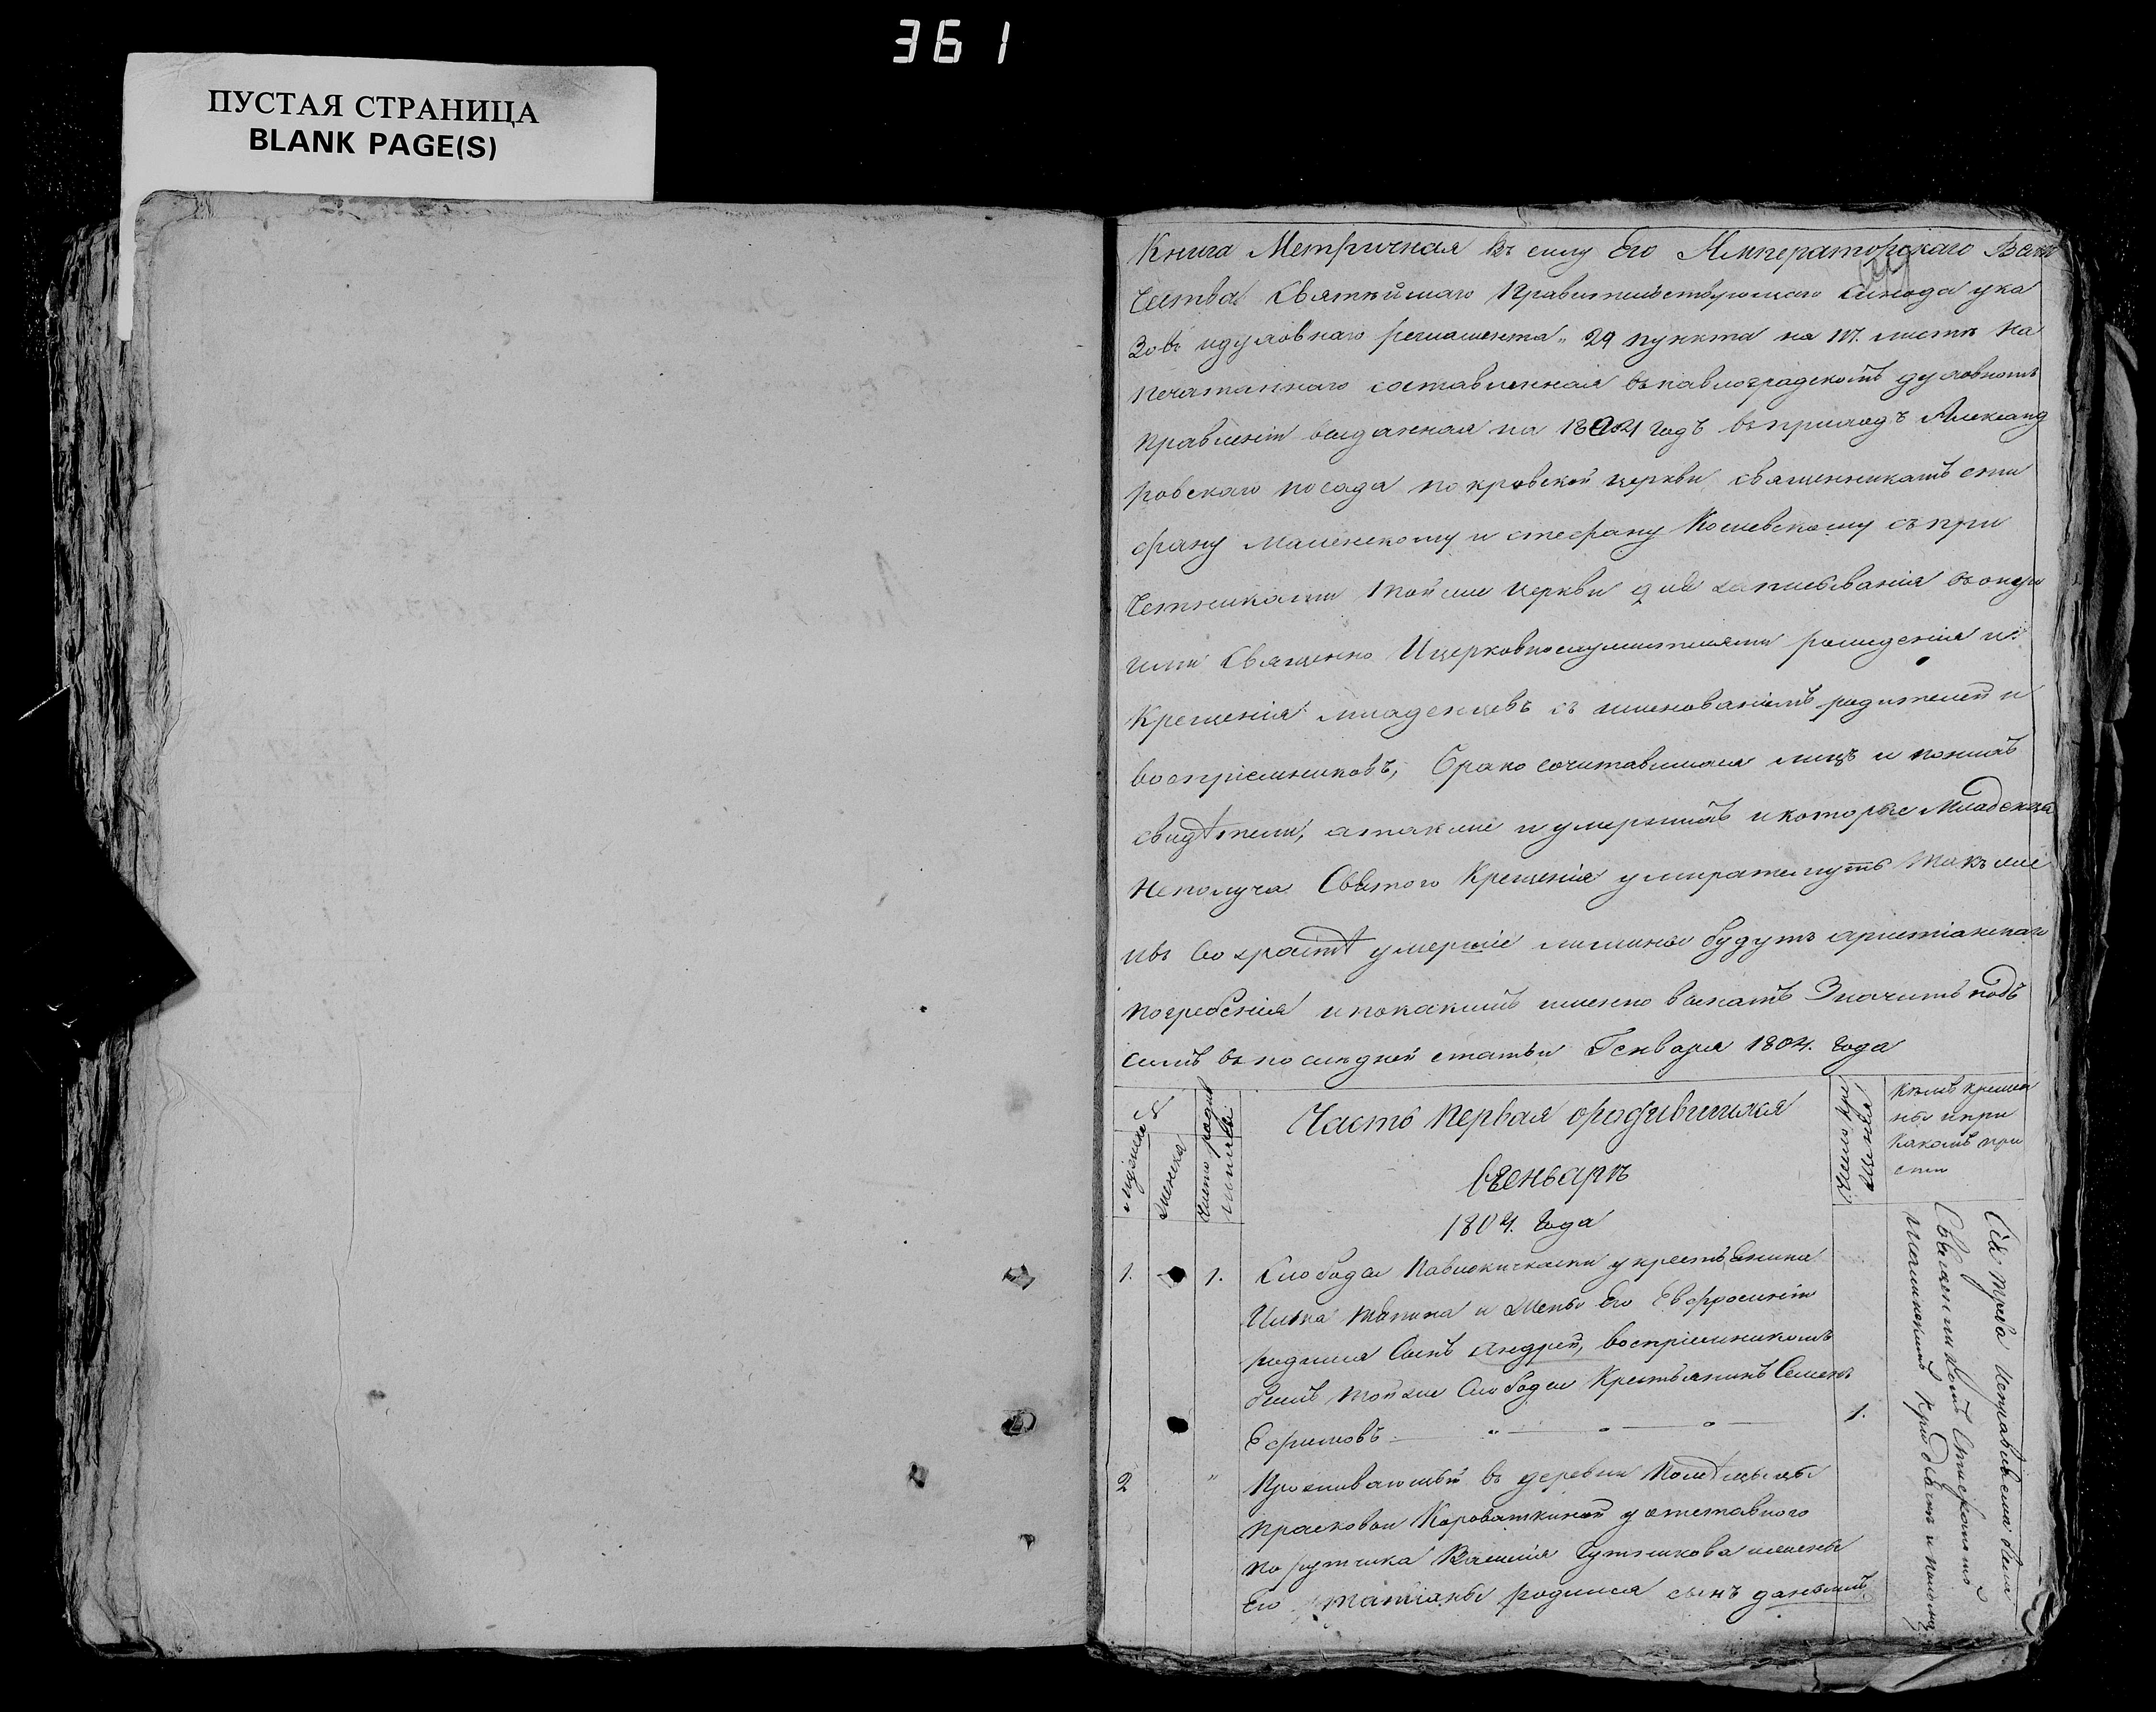 361
ПУСТАЯ СТРАНИЦА
BLANK PAGE(S)
Книга Метричная въ силу Его Императорскаго Вели
чества Святейшаго Правительствующаго Синода ука
зовъ идуховнаго регламента 29 пункта на листе на
печатаннаго составленная въпавлоградскомъ духовномъ
правленіи выданная на 1804 годъ въприходъ Александ
ровскаго посада покровской церкви священникамъ сти
фану и стефану Кошевскому съпри
четниками тойже церкви для записыванія въоную
ими Священно Ицерковнослужителями рожденія и
Крещенія младенцевъ съ именованіемъ родителей и
воспріемниковъ, Брако сочитавшихся лицъ и понихъ
свидѣтели, атакже иумершихъ икоторые Младенца
Неполуча Святого Крещенія умиратьмутъ такъже
ивъ возрастѣ умершіе лишины будутъ христіанскаго
погребенія ипокакимъ именно винамъ Значитъ подъ
симъ въпоследней статьи Генваря 1804. Года
мужеска
женска
число родив
шихся
Часть Первая ородившихся
вгеньварѣ
1804. Года
число кре
щенія
Кѣмъ креще
ны ипри
какомъ при
сти
1. 1. Слобода Павлокичкаски укрестьянина
и Жены Его Евфросиніи
родился Сынъ Андрей, воспріемникомъ
былъ тойже Слободы Крестьянинъ Семенъ
Ефимовъ 1.
2 " Проживающый въ деревни Помѣщыцы
Прасковьи Короваткиной у отставного
порутчика Василія ижены
Его Татіаны родился сынъ даныилъ
Сія треба исправляема была
Священникомъ Стифаномъ